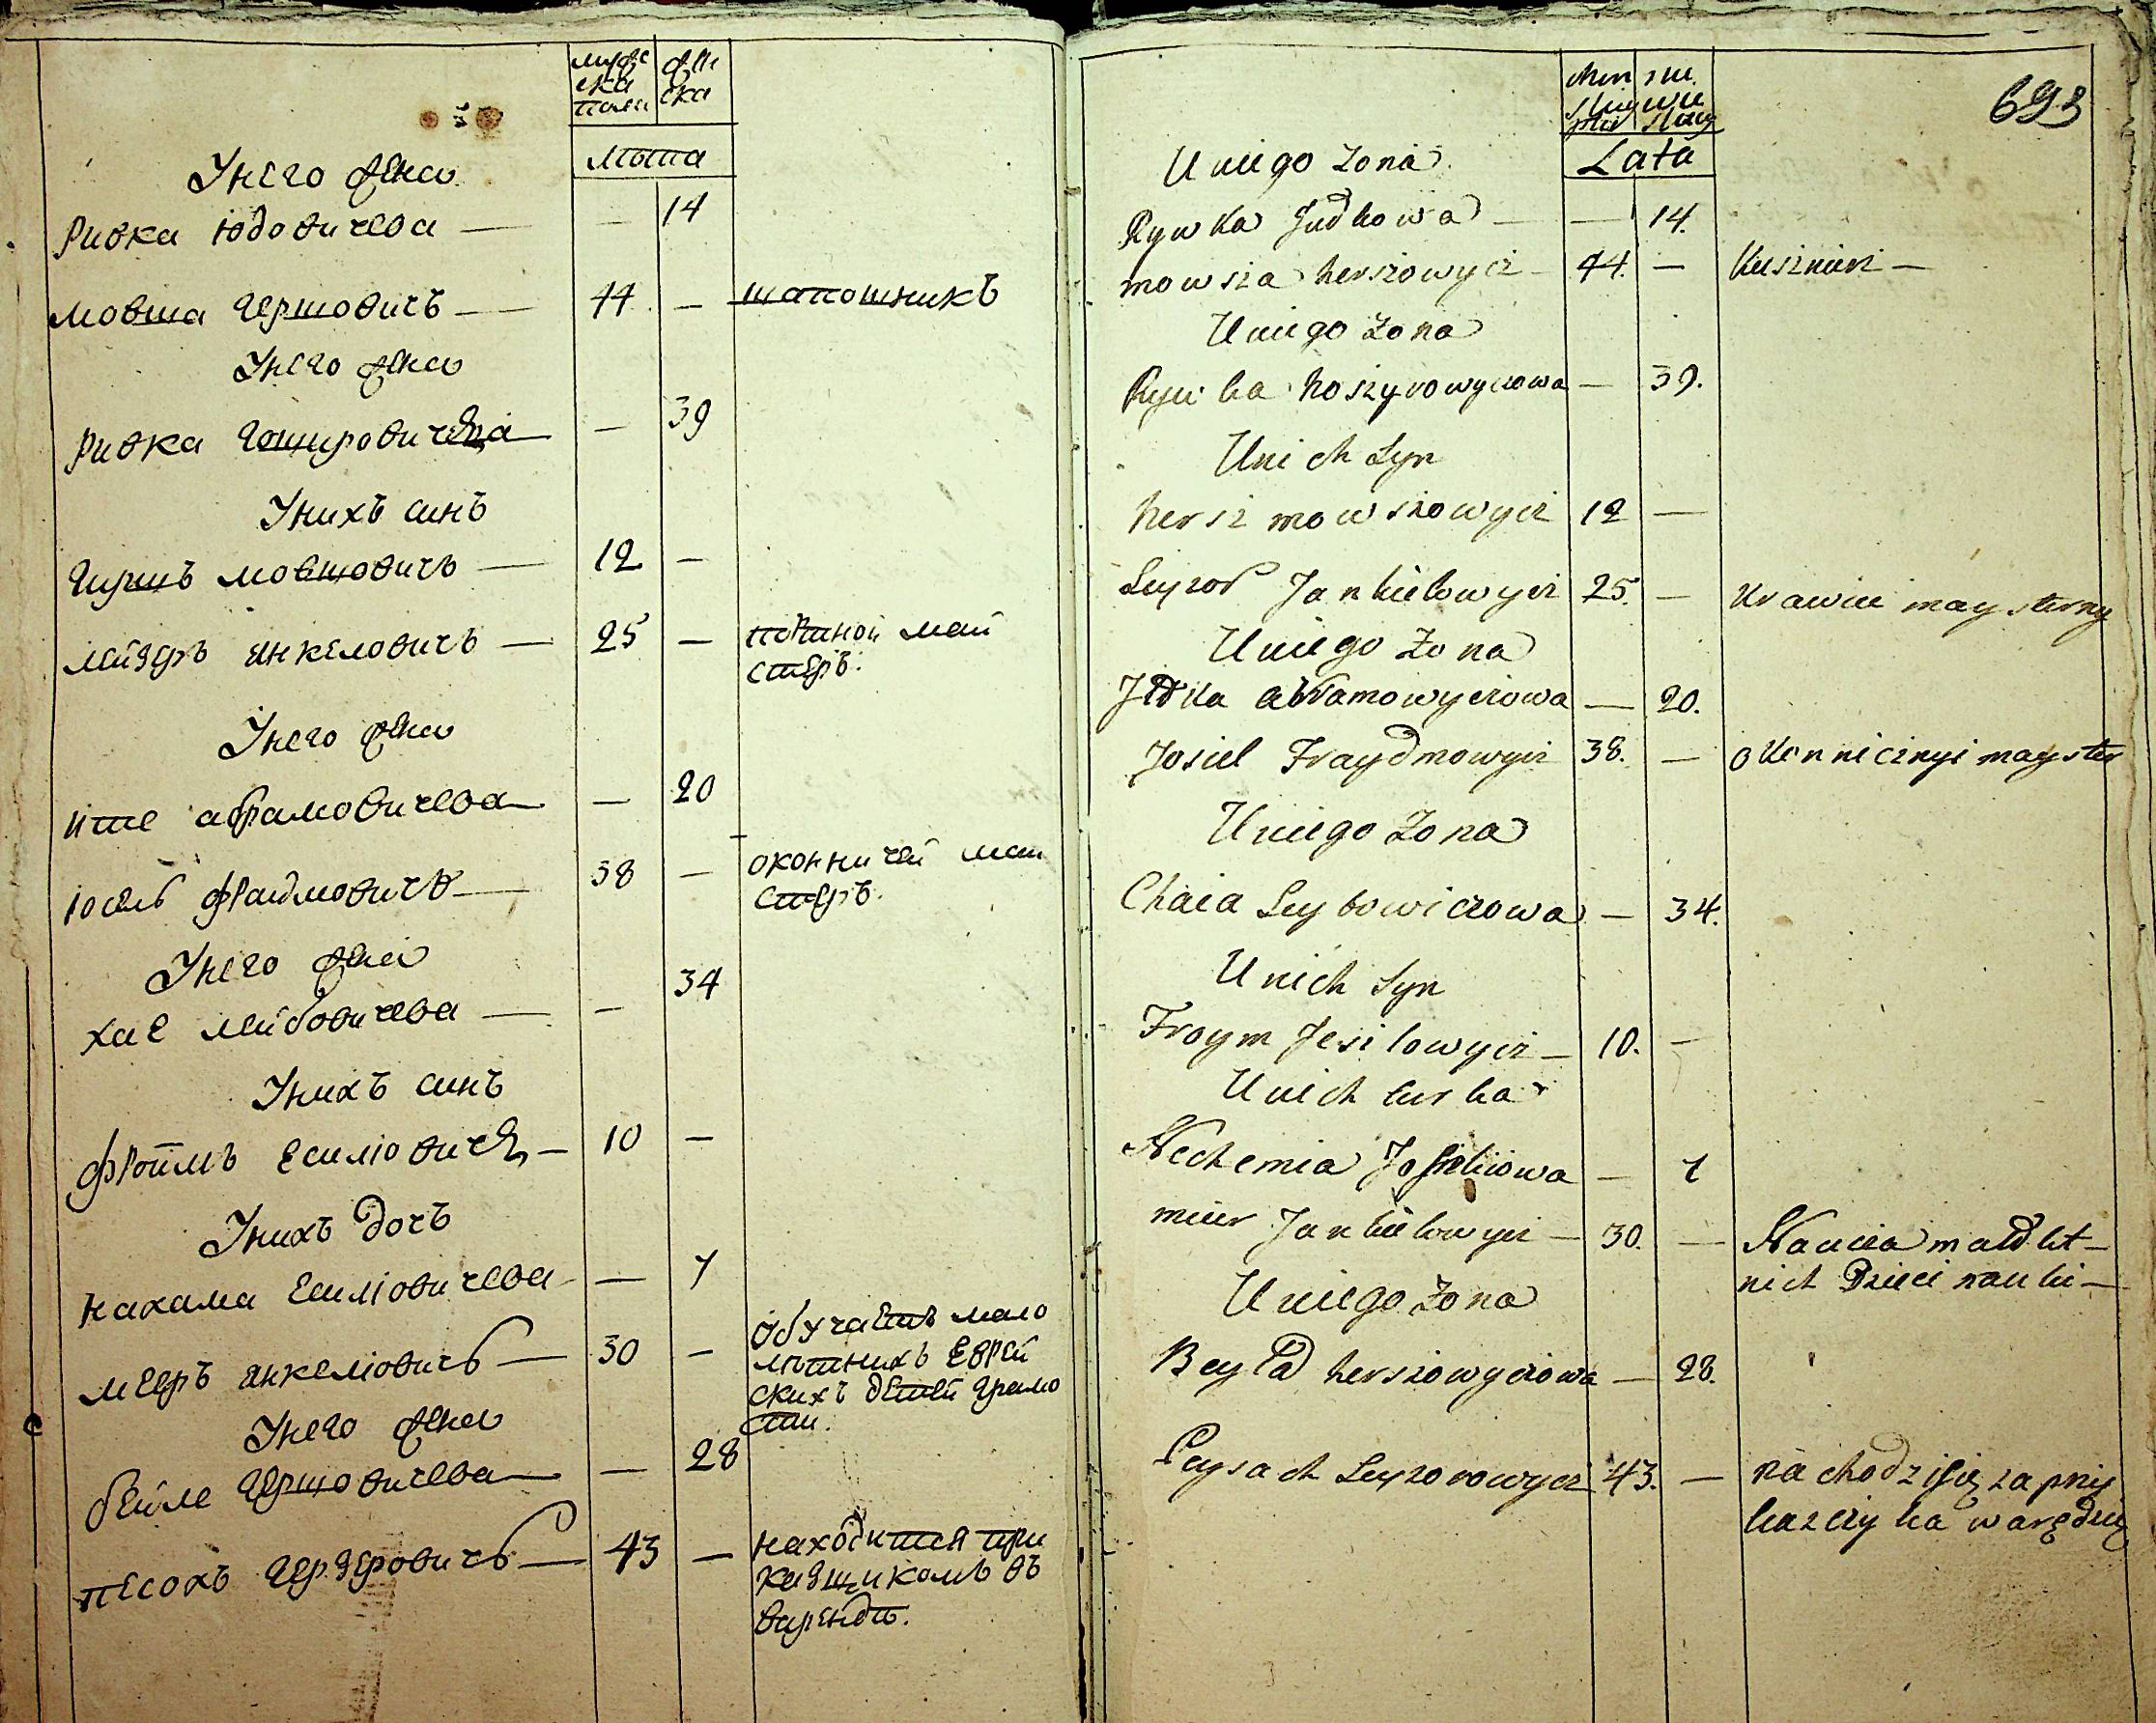 мужеска пола
женска
лѣта
У него жена
Ривка Юдовичева — — 14
Мовша Гершовичъ — 44 — шапошникъ
У него жена
Ривка Гошировичева — — 39
У нихъ синъ
Гиршъ Мовшовичъ — 12 —
Лейзеръ Янкеловичъ — 25 — портной май
стеръ.
У него жена
Ите Абрамовичева — — 20
Юсель Фраимовичъ — 38 — оконничей май
стеръ.
У него жена
Хае Лейбовичева — — 34
У нихъ синъ
Фроимъ Есиліовичъ — 10 —
У нихъ дочъ
Нахама Есиліовичева — — 7
Мееръ Янкеліовичъ — 30 — Обучаетъ мало
лѣтнихъ Еврей
скихъ детей грамо
ти.
У него жена
Бейле Гершовичева — — 28
Песохъ — 43 — находится при
кащикомъ въ
варендѣ.
693
Lata
U niego Zona
Rywka Judkowa — — 14.
mowsza herszowycz — 44. — Kusznierz —
U niego Zona
Rywka hoszyrowyczowa — 39.
U nich Syn
hersz mowszowycz 12 —
Leyzor Jankielowycz 25. — Krawiec maysterny
U niego Zona
Itka abramowyczowa — 20.
Josiel Fraydmowycz 38. — okennicznyi mayster
U niego Zona
Chaia Leybowiczowa — 34.
U nich Syn
Froym Jesilowycz — 10. —
U nich curka
Nechemia — 7
meier Jankielowycz — 30. — Naucza małolet-
nich Dzieci nauki —
U niego Zona
Beyla herszowyczowa — 28.
Peysach Leyzorowycz 43. — nachodzi się za pry
kaszczyka w arędzie